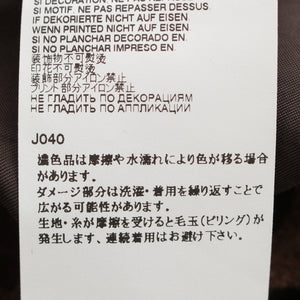 SI DECORATION, NE PAS REPASSER.
SI MOTIF, NE PAS REPASSER DESSUS.
IF DEKORIERTE NICHT AUF EISEN.
WENN PRINTED NICHT AUF EISEN.
SI NO PLANCHAR DECORADO EN.
SI NO PLANCHAR IMPRESO EN.
装饰物不可熨烫
印花不可熨烫
装飾部分アイロン禁止
プリント部分アイロン禁止
НЕ ГЛАДИТЬ ПО ДЕКОРАЦИЯМ
НЕ ГЛАДИТЬ ПО АППЛИКАЦИИ
J040
濃色品は摩擦や水濡れにより色が移る場合
があります。
ダメージ部分は洗濯・着用を繰り返すことで
広がる可能性があります。
生地・糸が摩擦を受けると毛玉(ピリング)が
発生します、連続着用はお避け下さい。